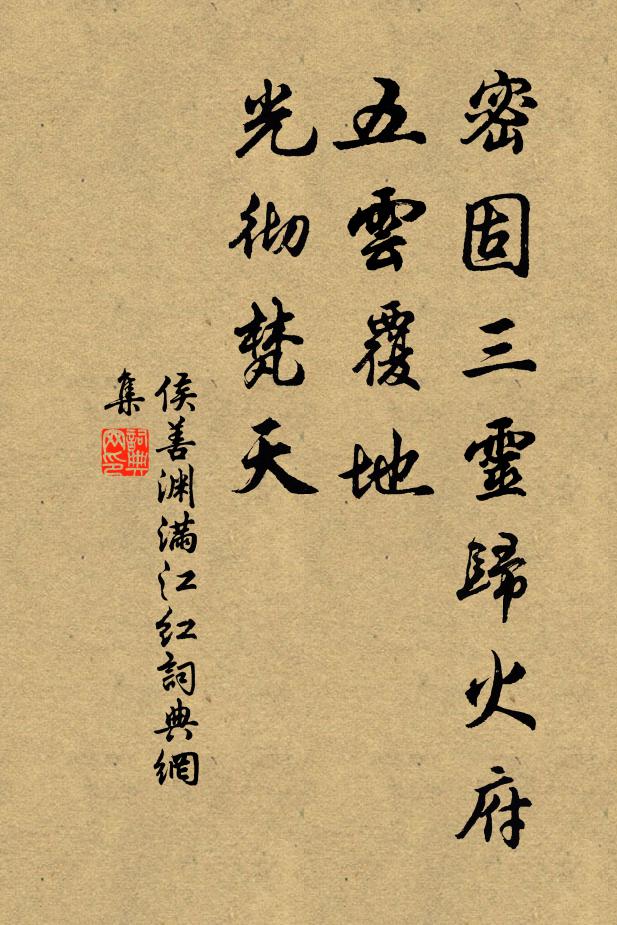 密固三靈歸火府
五雲覆地
光彻梵天
侯善渊滿江红詞典網
集
詞典網印